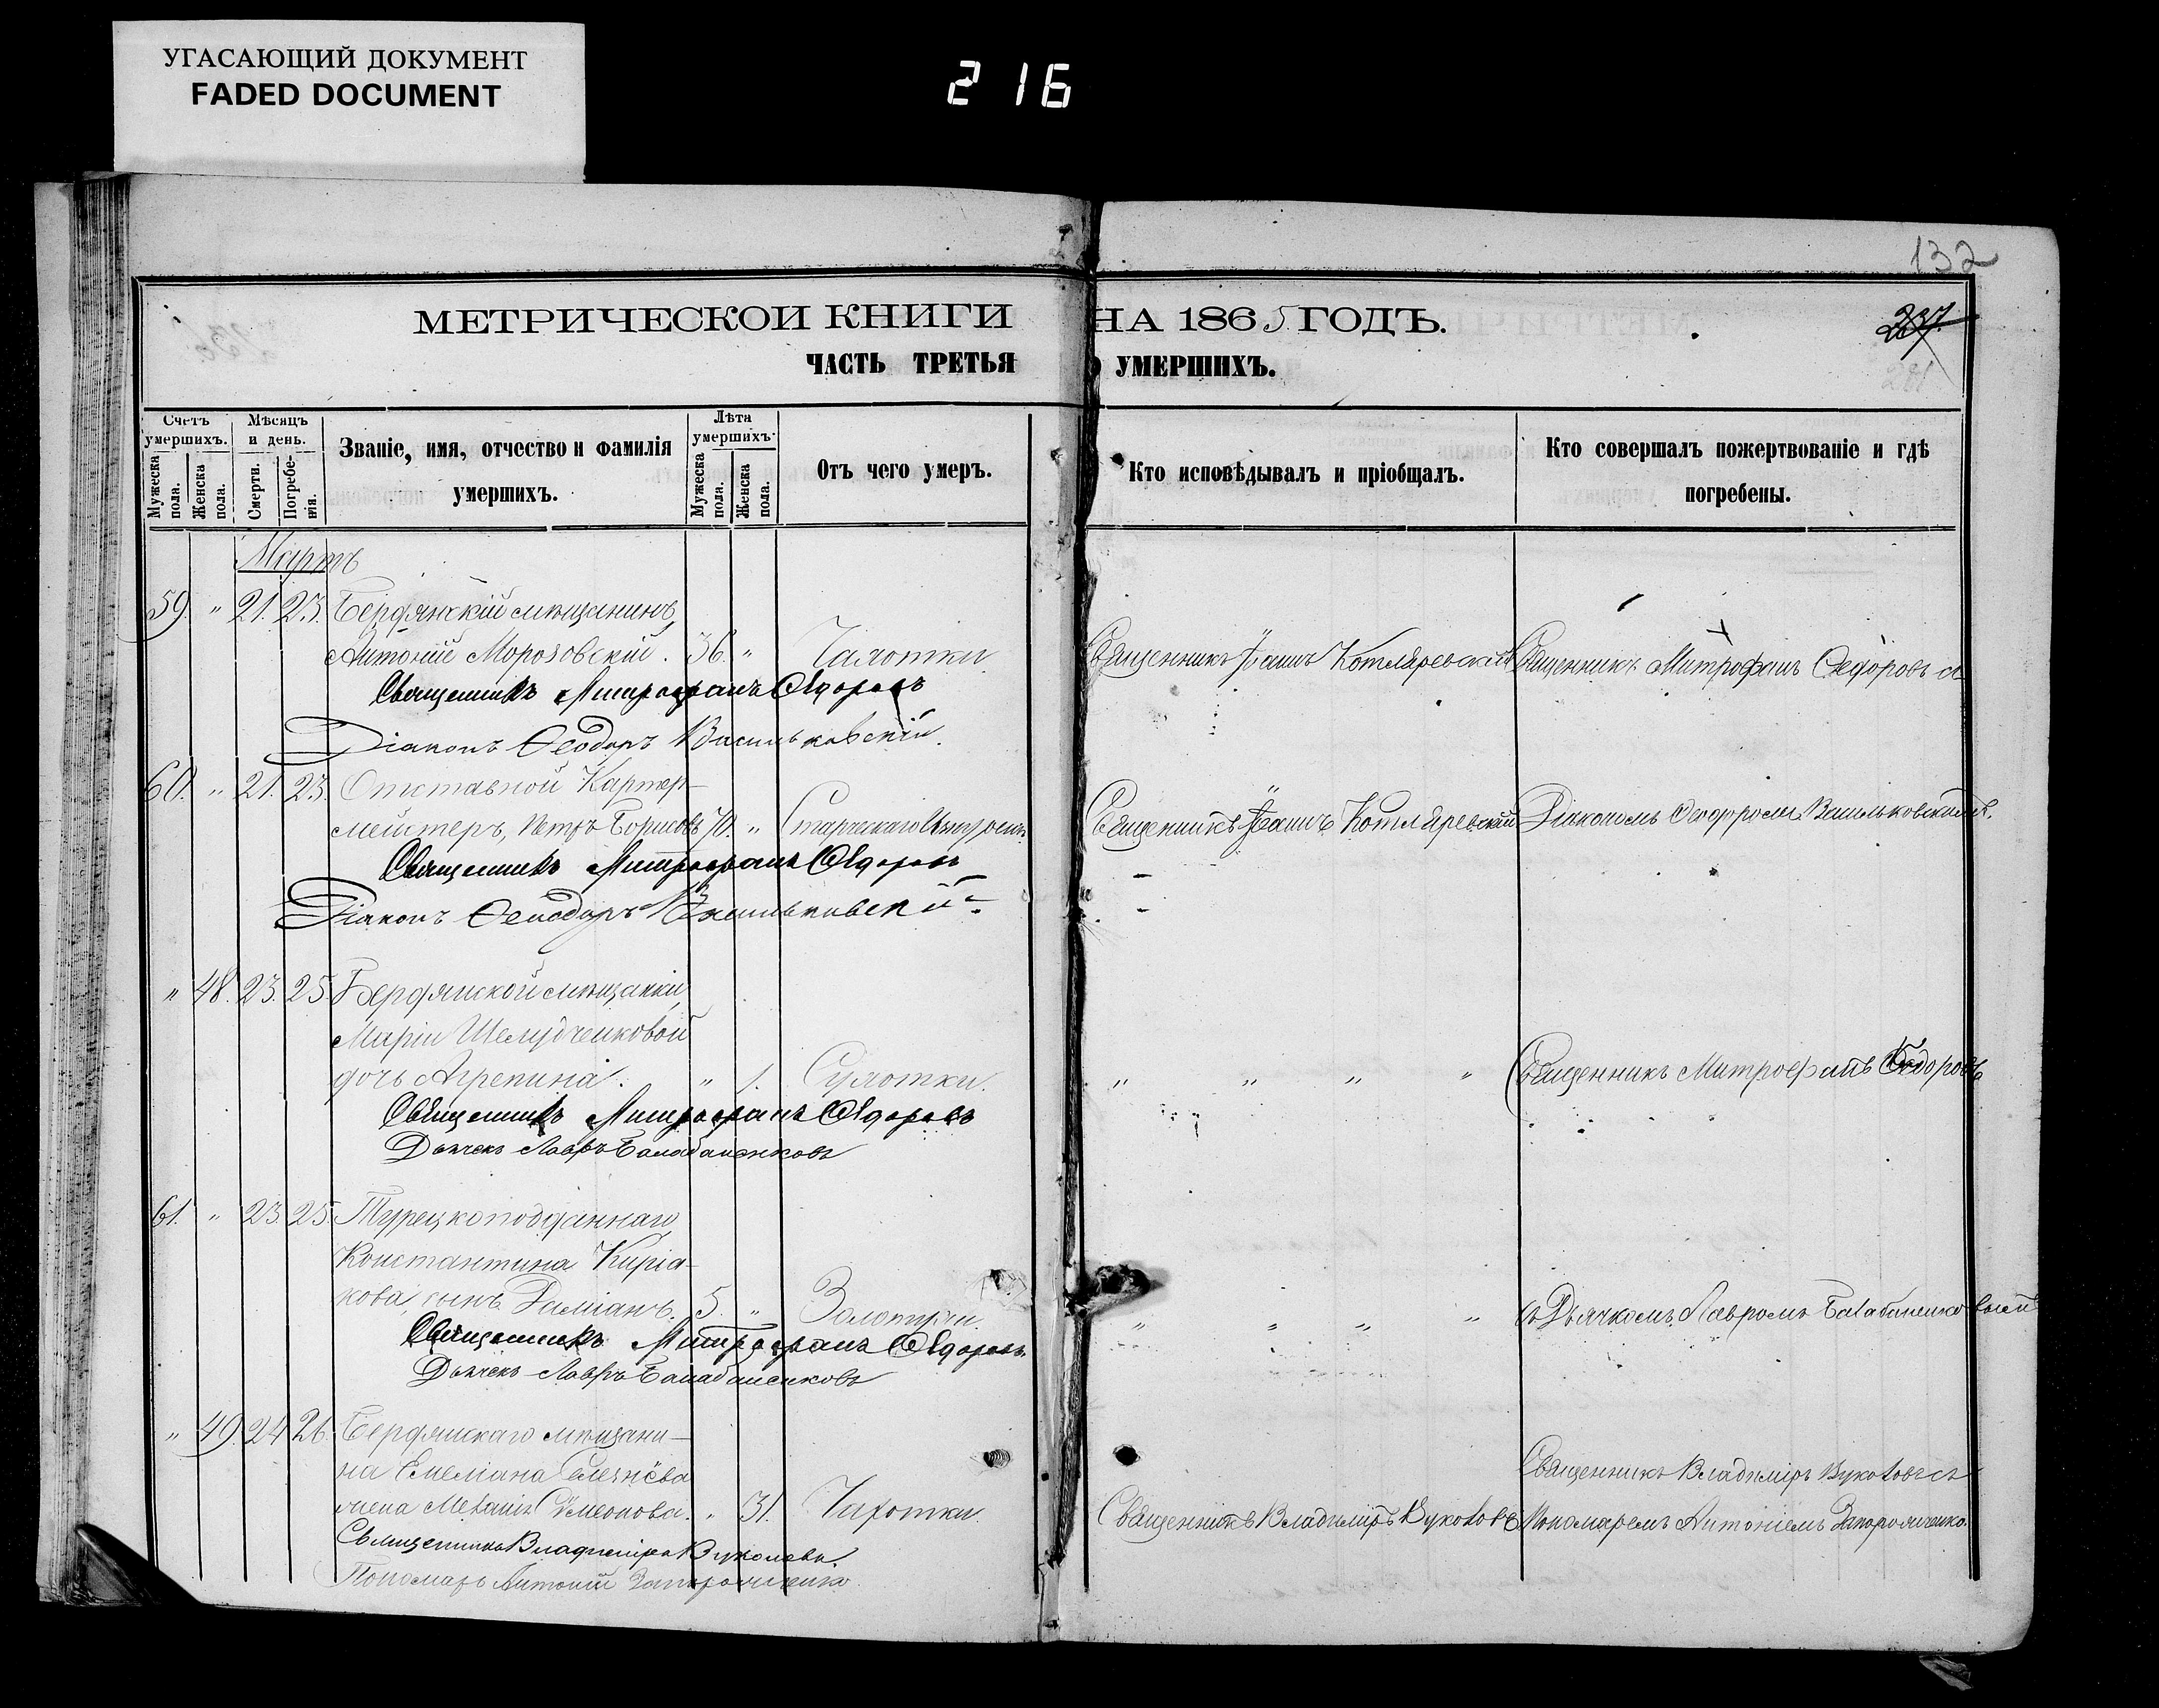 УГАСАЮЩИЙ ДОКУМЕНТ
FADED DOCUMENT
216
132
МЕТРИЧЕСКОИ КНИГИ НА 1865 ГОДЪ.
237
ЧАСТЬ ТРЕТЬЯ О УМЕРШИХЪ.
Счетъ умершихъ.
Мужеска пола.
Женска пола.
Мѣсяцъ и день.
Смерти.
Погребенія.
Званіе, имя, отчество и фамилія умершихъ.
Лѣта умершихъ.
Мужеска пола.
Женска пола.
Отъ чего умеръ.
Кто исповѣдывалъ и пріобщалъ.
Кто совершалъ пожертвованіе и гдѣ погребены.
Мартъ
59. " 21. 23. Бердянскій мѣщанинъ
Антоній Морозовскій. 36. " Чахотки Священникъ Іоаннъ Котляревскій Священникъ Митрофанъ Ѳедоровъ съ
Священникъ Митрофанъ Ѳедоровъ
Діаконъ Ѳеодоръ Васильковскій.
60. " 21. 23. Отставной Картер-
мейстеръ, Петръ Борисовъ 70. " Старческаго Священникъ Іоаннъ Котляревскій Діакономъ Ѳеодоромъ Васильковскимъ.
Священникъ Митрофанъ Ѳедоровъ
Діаконъ Ѳеодоръ Васильковскій
" 48. 23. 25. Бердянской мѣщанки
Маріи Шелудченковой
дочь Агрепина. " 1. Сухотки. " " " " Священникъ Митрофанъ Ѳедоровъ
Священникъ Митрофанъ Ѳедоровъ
Дьячекъ Лавръ Балабаненковъ
61. " 23. 25. Турецкоподданнаго
Константина Киріа-
кова, сынъ Даміанъ. 5. " Золотухи. " " " " съ Дьячкомъ Лавромъ Балабаненковымъ
Священникъ Митрофанъ Ѳедоровъ
Дьячекъ Лавръ Балабаненковъ
" 49. 24. 26. Бердянскаго мѣщани-
на Емеліана Селезнёва Священникъ Владиміръ Вуколовъ съ
жена Меланія Сѵмеонова. " 31. Чахотки. Священникъ Владиміръ Вуколовъ Пономаремъ Антоніемъ Запорожченко.
Священникъ Владиміръ Вуколовъ.
Пономарь Антоній Запорожченко